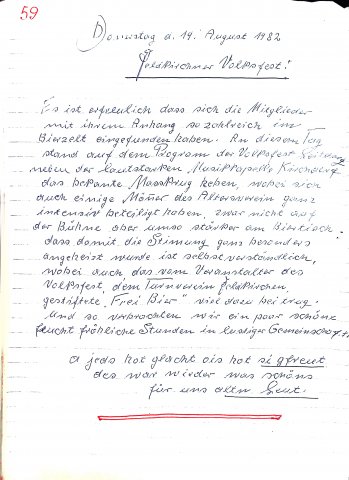 59
Donnerstag d. 19. August 1982
Feldkirchner Volksfest!
Es ist erfreulich dass sich die Mitglieder
mit ihrem Anhang so zahlreich im
Bierzelt eingefunden haben. An diesem Tag
stand auf dem Program der Volksfest Zeitung
neben der lautstarken Musikkapelle
das bekante Masskrug heben, wobei sich
auch einige Mäner des Altersverein ganz
intensiv beteiligt haben, zwar nicht auf
der Bühne aber umso stärker am Biertisch.
dass damit die Stimung ganz besonders
angeheizt wurde ist selbstverständlich,
wobei auch das vom Veranstalter des
Volksfest, dem Turnverein Feldkirchen,
gestiftete "Frei Bier" viel dazu bei trug.
Und so verbrachten wir ein paar schöne
feucht fröhliche Stunden in lustiger Gemeinschaft.
a jeds hot glacht ois hot sigfreut
des war wieder was schöns
für uns altn Leut.